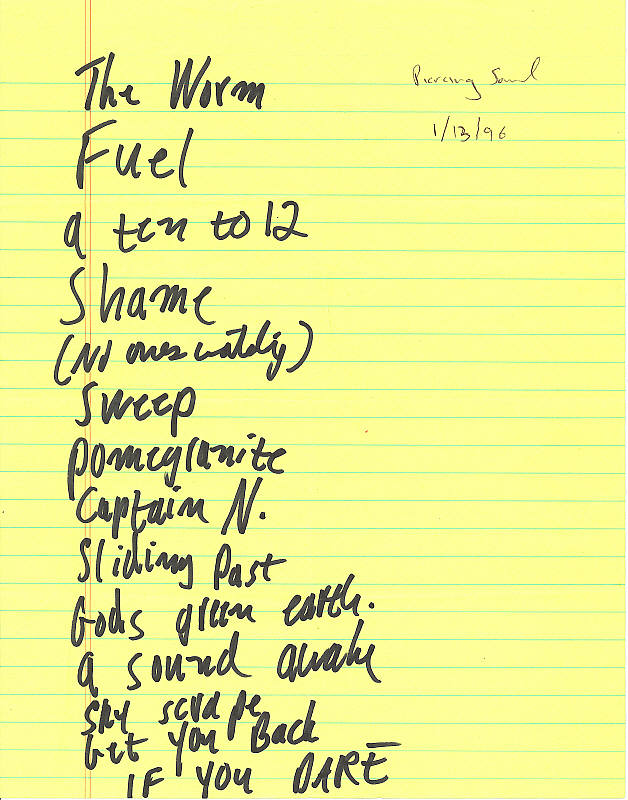 The Worm
Piercing Sound
1/13/96
Fuel
a ten to 12
Shame
(No ones watching)
Sweep
pomegranite
Captain N.
Sliding Past
Gods green earth.
a sound awake
Sky scrape
Get you Back
IF YOU DARE